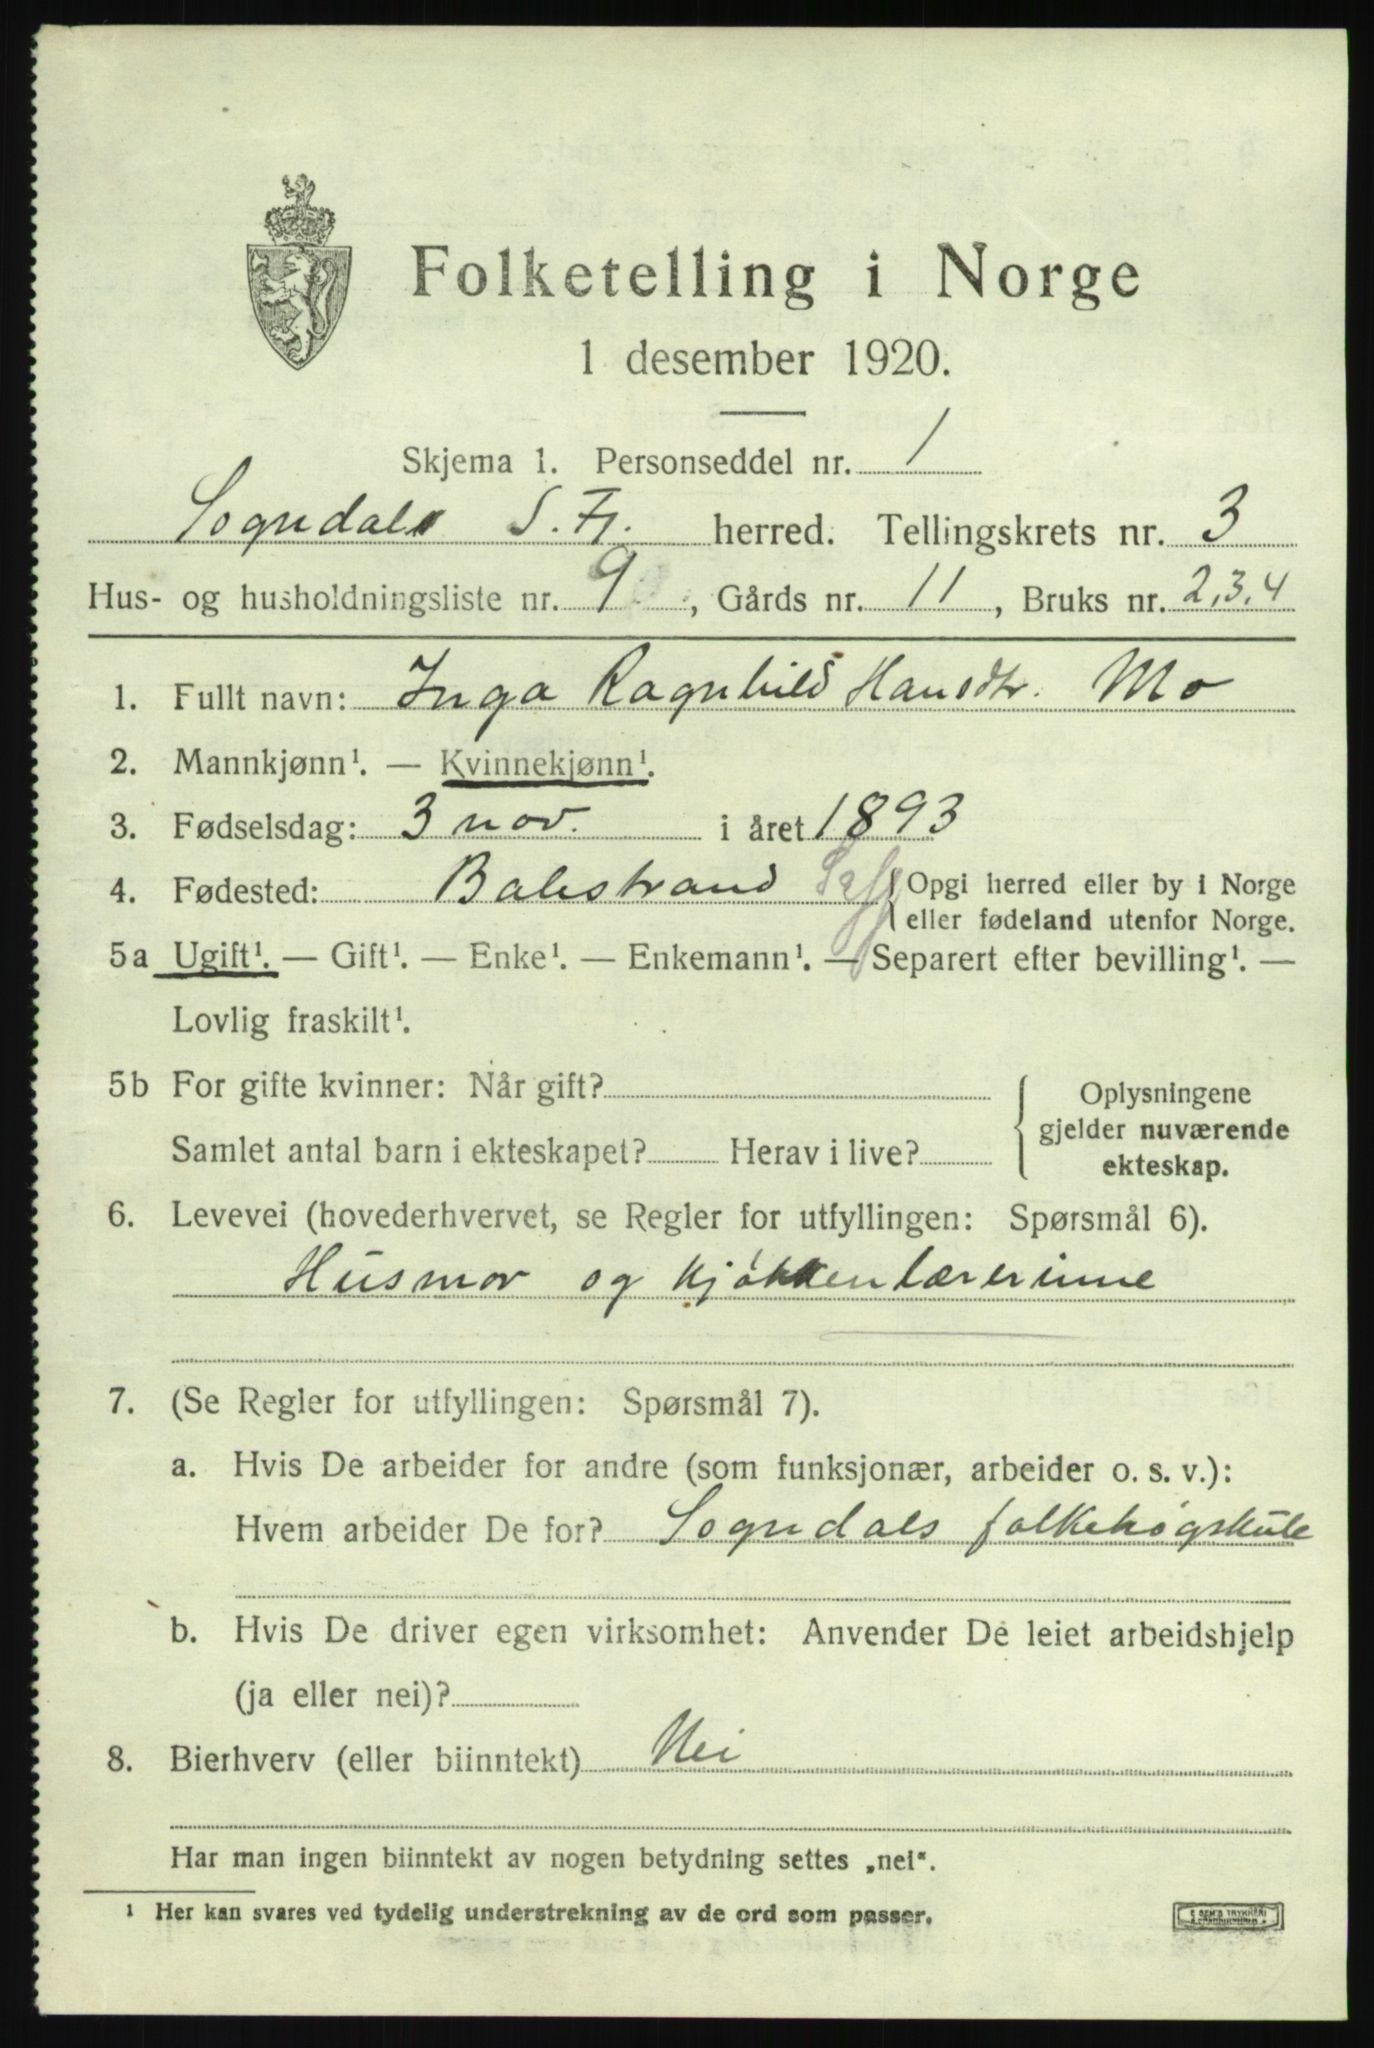 Folketelling i Norge
1 desember 1920.
Skjema 1. Personseddel nr. 1
Sogndal S. Fj. herred. Tellingskrets nr. 3
Hus- og husholdningsliste nr. 9, Gårds nr. 11, Bruks nr. 2,3,4
1. Fullt navn: Inga Ragnhild Hansdtr. Mo
2. Mannkjønn¹. — Kvinnekjønn¹.
3. Fødselsdag: 3 nov. i året 1893
4. Fødested: Balestrand S&Fj {Opgi herred eller by i Norge
eller fødeland utenfor Norge.
5a Ugift¹. — Gift¹. — Enke¹. — Enkemann¹. — Separert efter bevilling¹. —
Lovlig fraskilt¹.
5b For gifte kvinner: Når gift?
Samlet antal barn i ekteskapet? Herav i live?
Oplysningene
gjelder nuværende
ekteskap.
6. Levevei (hovederhvervet, se Regler for utfyllingen: Spørsmål 6).
Husmor og kjøkkenlærerinne
7. (Se Regler for utfyllingen: Spørsmål 7).
a. Hvis De arbeider for andre (som funksjonær, arbeider o. s. v.):
Hvem arbeider De for? Sogndals folkehøgskule
b. Hvis De driver egen virksomhet: Anvender De leiet arbeidshjelp
(ja eller nei)?
8. Bierhverv (eller biinntekt) Nei
Har man ingen biinntekt av nogen betydning settes „nei".
¹ Her kan svares ved tydelig understrekning av de ord som passer.